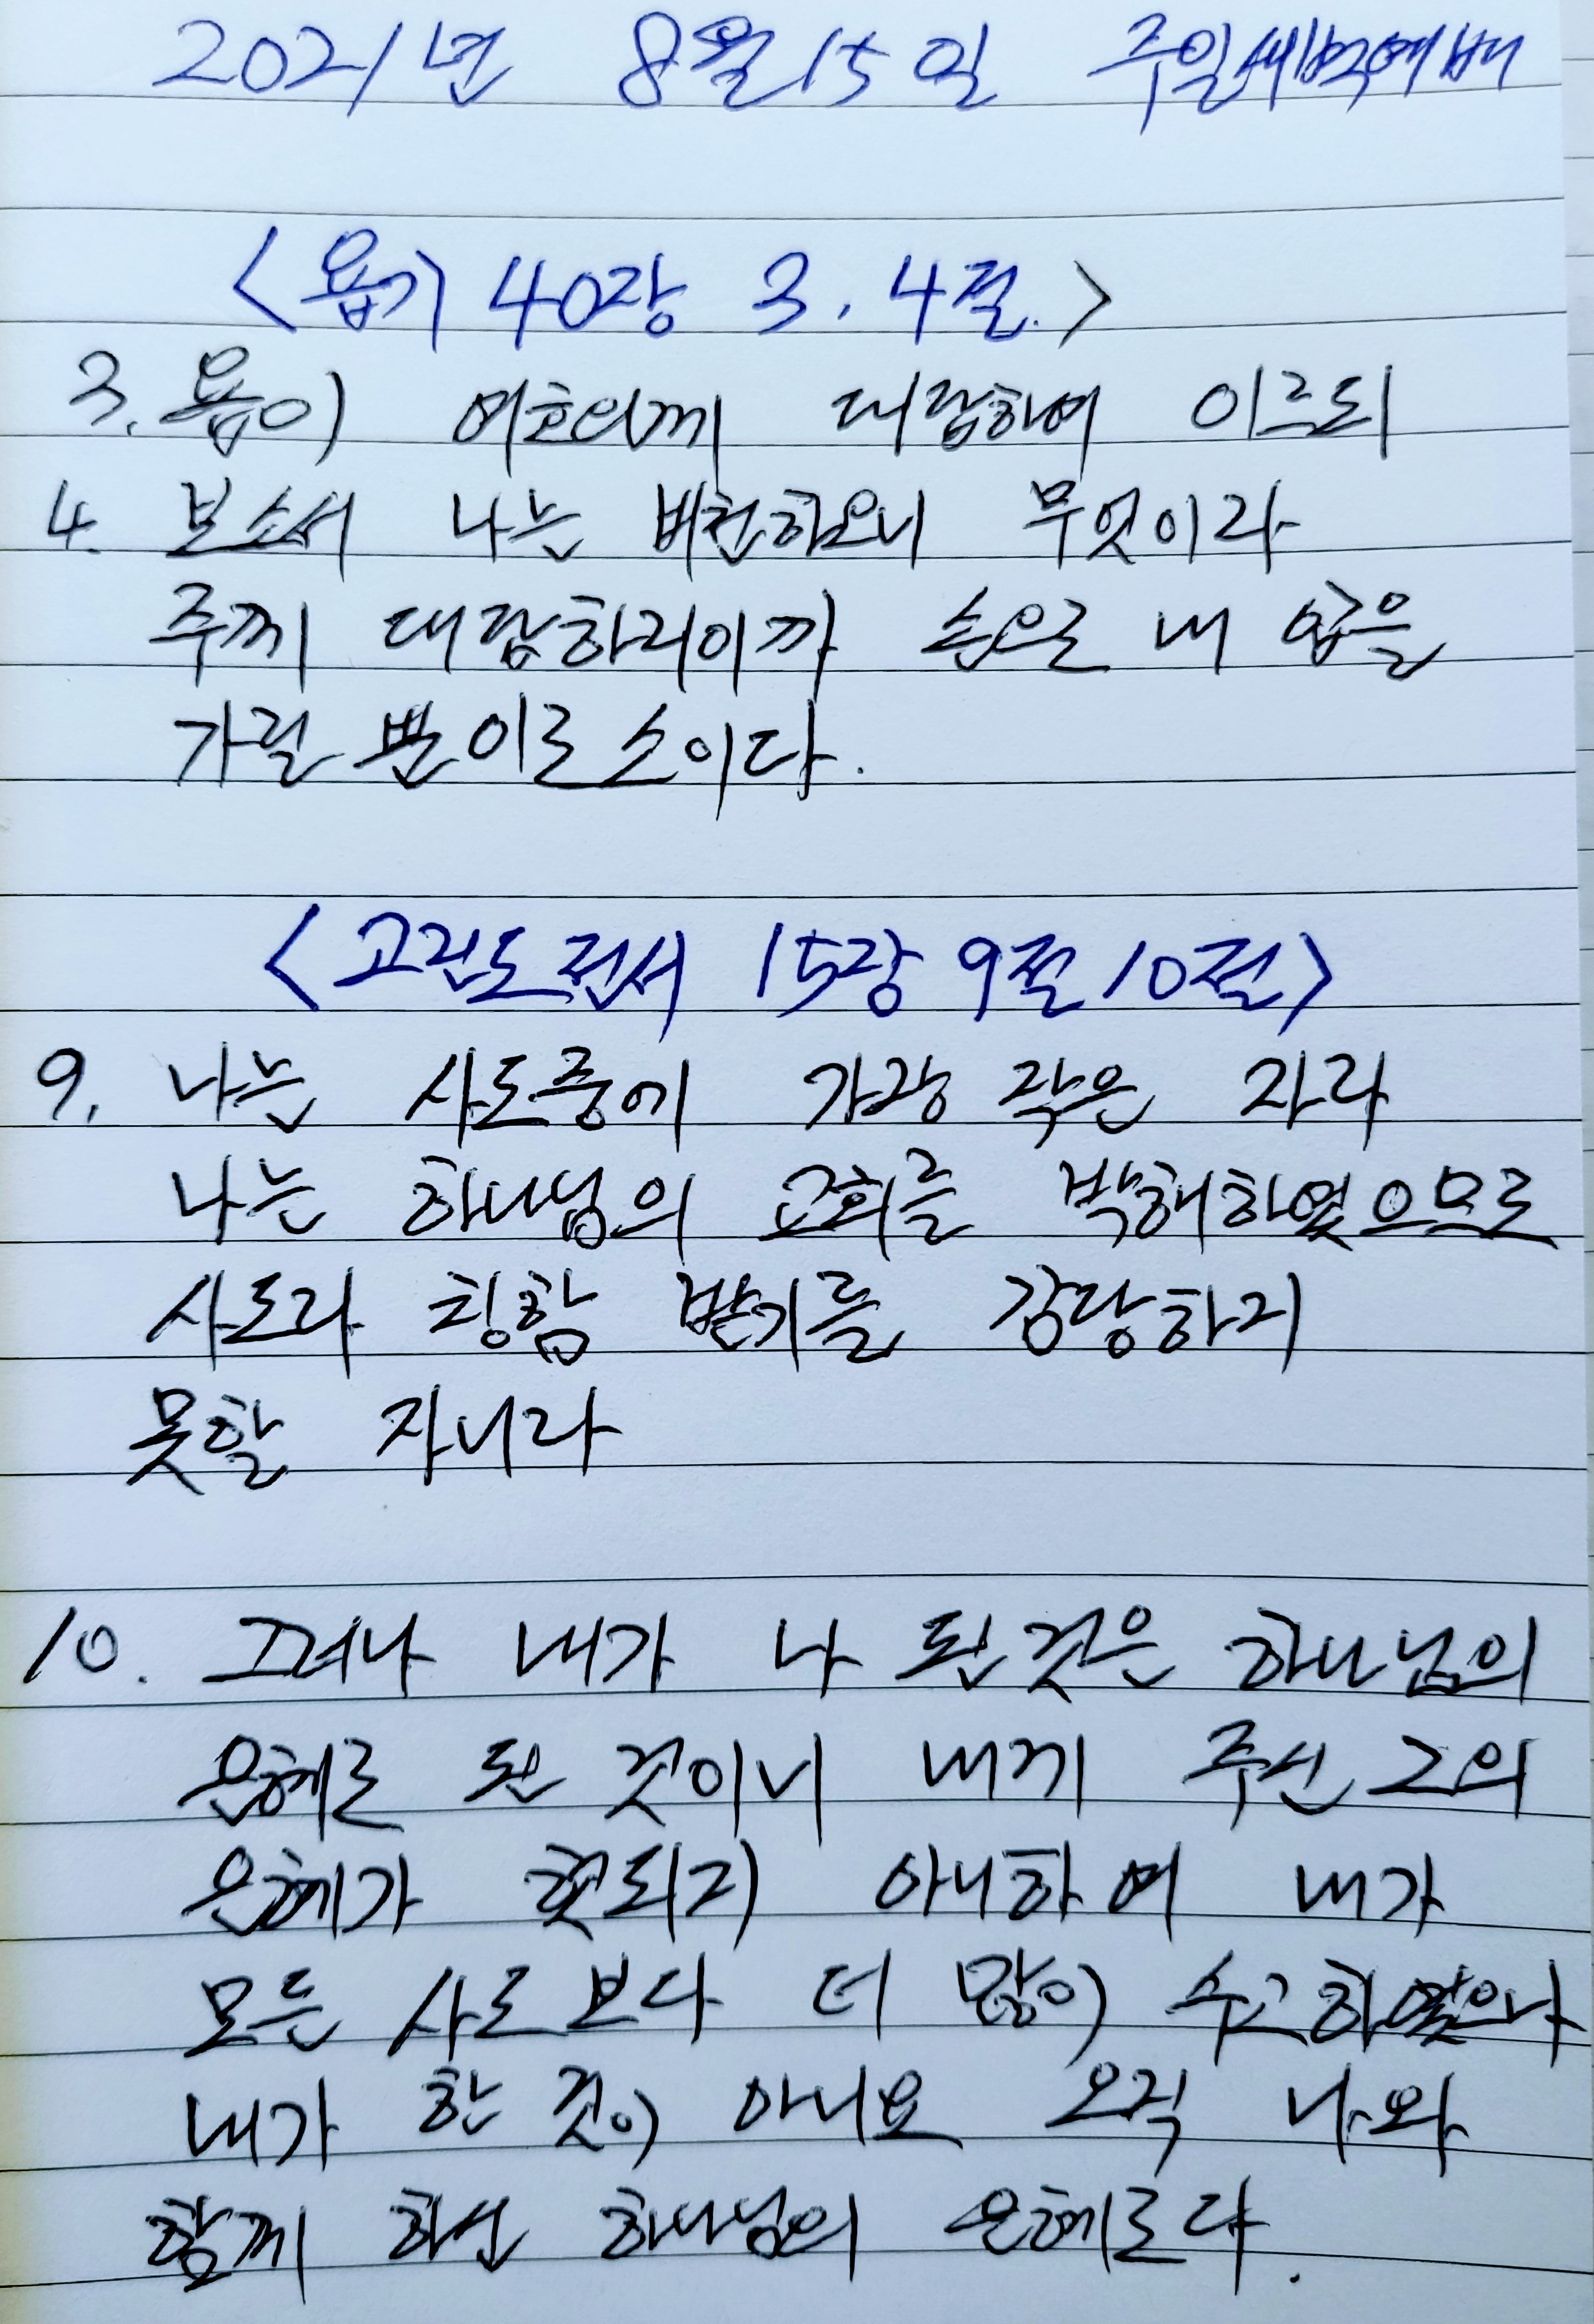 2021년 8월 15일 주일새벽예배
<욥기 40장 3, 4절.>
3. 욥이 여호와께 대답하여 이르되
4. 보소서 나는 비천하오니 무엇이라
주께 대답하리이까 손으로 내 입을
가릴 뿐이로소이다.
<고린도전서 15장 9절 10절>
9. 나는 사도중에 가장 작은 자라
나는 하나님의 교회를 박해하였으므로
사도라 칭함 받기를 감당하지
못할 자니라
10. 그러나 내가 나 된것은 하나님의
은혜로 된 것이니 내게 주신 그의
은혜가 헛되지 아니하여 내가
모든 사도보다 더 많이 수고하였으나
내가 한 것이 아니요 오직 나와
함께 하신 하나님의 은혜로다.